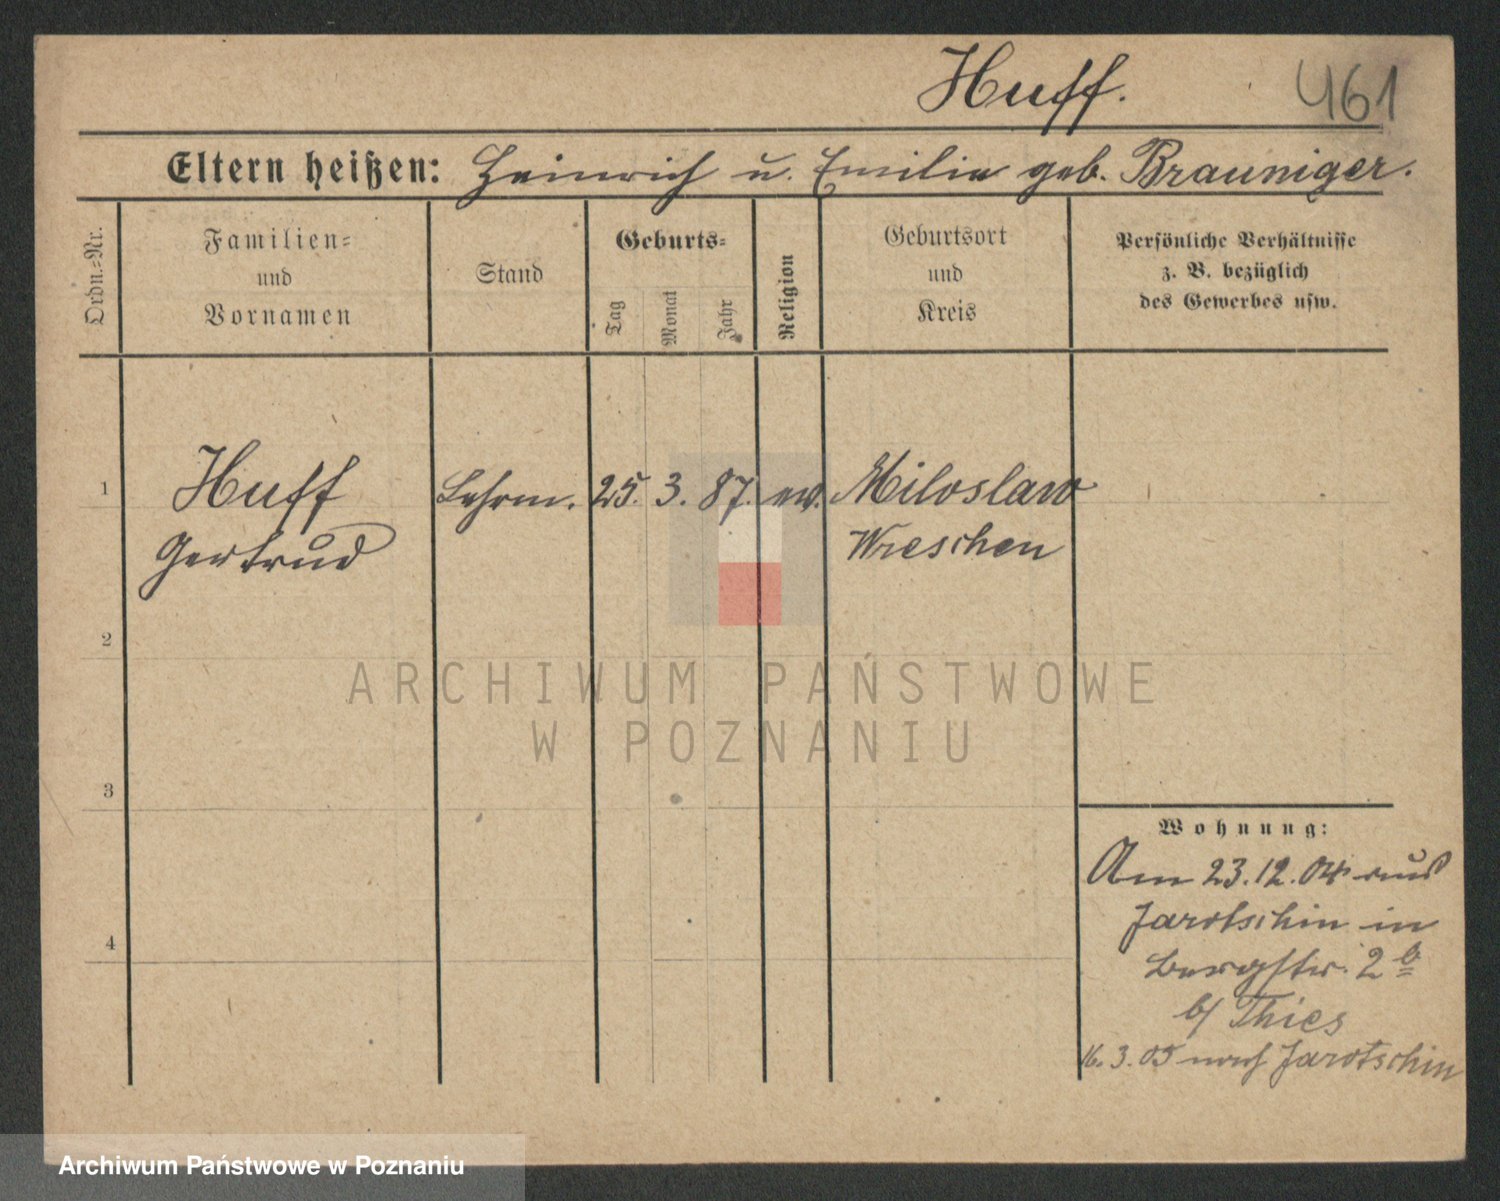 Huff. 461
Eltern heißen: Heinrich u. Emilie geb. Brauniger.
Ordn.-Nr.
Familien-
und
Vornamen
Stand
Geburts-
Tag
Monat
Jahr
Religion
Geburtsort
und
Kreis
Persönliche Verhältnisse
z. B. bezüglich
des Gewerbes usw.
1 Huff Lehrm. 25. 3. 87. ev. Miloslaw
Gertrud Wreschen
2
3
4
Wohnung:
Am 23.12.04 aus
Jarotschin in
Bergstr. 2 b
b/ Thies
16.3.05 nach Jarotschin
ARCHIWUM PAŃSTWOWE
W POZNANIU
Archiwum Państwowe w Poznaniu